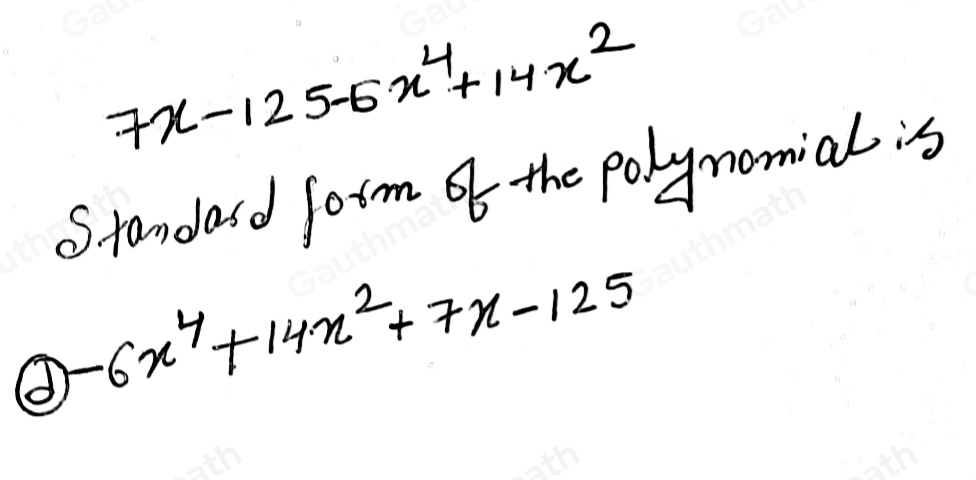 7x-125-6x⁴+14x²
Standard form of the polynomial is
ⓓ-6x⁴+14x²+7x-125